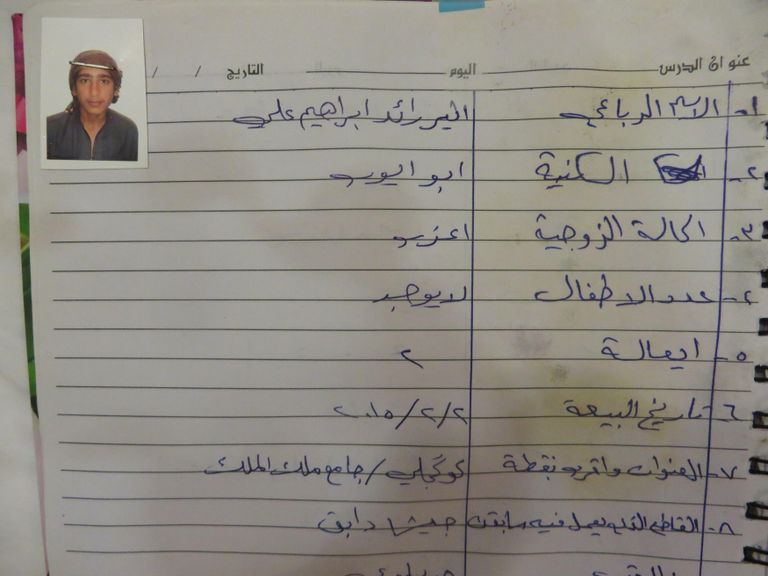 عنوان الدرس اليوم التاريخ / /
١- الاسم الرباعي اليرر رائد ابراهيم علي
٢- الكنية ابو ايوب
٣- الحالة الزوجية اعزب
٤- عدد الاطفال لايوجد
٥- ايعالة ٢
٦- تاريخ البيعة ٢/٢/٢٠١٥
٧- العنوان واقرب نقطة كوكجلي/جامع ملك الملك
٨- القاطع الذي يعمل فيه سابقا جيش دابق